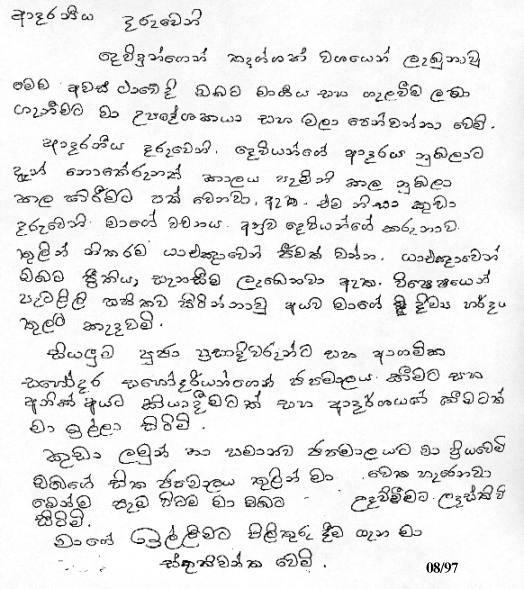 ආදරනීය දරුවෙනි
දෙවිදුන්ගෙන් තෑග්ගක් වශයෙන් ලැබුනාවූ
මෙම අවස්ථාවේදී ඔබට මාගීය සහ ගැලවීම ලබා
ගැනීමට මා උපදේශකයා සහ මලා පෙන්වන්නා වෙමි.
ආදරනීය දරුවෙනි. දෙවියන්ගේ ආදරය නුඹලාට
දැන් නොතේරුනත් කාලය පැමිනි කල නුඹලා
පත් වෙනවා ඇත. එම නිසා කුඩා
දරුවෙනි මාගේ වචනය අනුව දෙවියන්ගේ කරුනාව
තුලින් නිතරම යාඥාවෙන් ජීවත් වන්න. යාඥාවෙන්
ඔබට ප්‍රීතිය, සැනසීම ලැබෙනවා ඇත. විශෙෂයෙන්
පැටලිලි සහිතව සිටින්නාවූ අයව මාගේ දිව්‍ය හර්දය
තුලට කැදවමි.
සියලුම පූජා ප්‍රසාදිවරුන්ට සහ ආගමික
සහෝදර සහෝදරියන්ගෙන් ජපමාලය කීමට සහ
අනිත් අයට කියාදීමටත් සහ ආදර්ශයක් වීමටත්
මා ඉල්ලා සිටිමි.
කුඩා ලමුන් හා සමානව ජපමාලයට මා ප්‍රියවෙමි
ඔබගේ හිත ජපමාලය තුලින් මා වෙත හැරෙනවා
මෙන්ම සෑම විටම මා ඔබට උදව්වීමට ලෑස්තිව
සිටිමි.
මාගේ ඉල්ලීමට පිලිතුරු දීම ගැන මා
ස්තුතිවන්ත වෙමි.
08/97